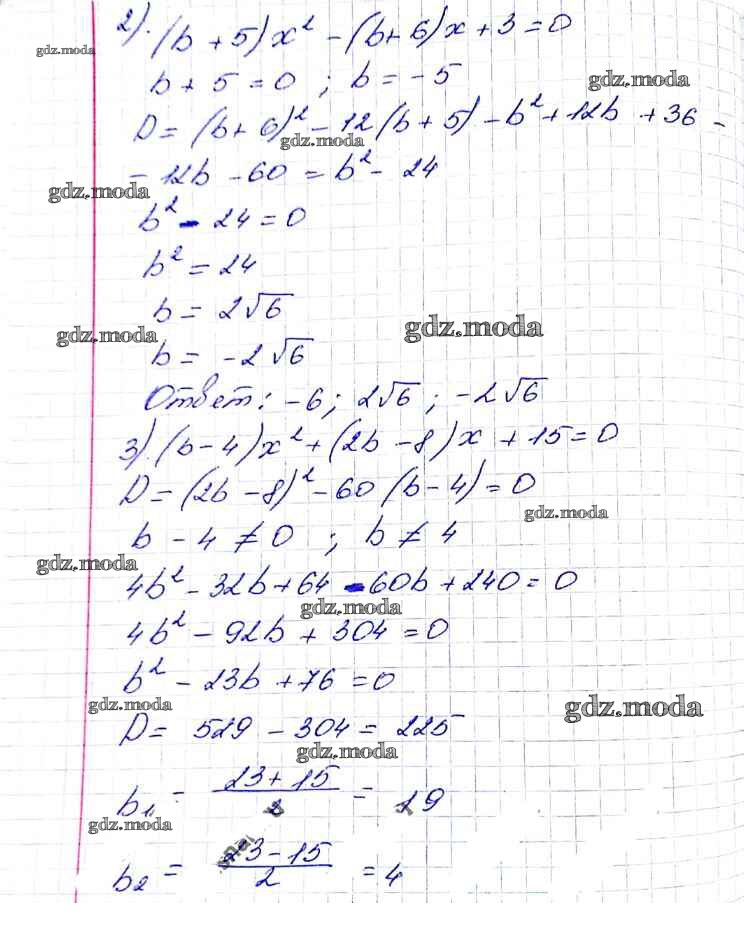 2). (b + 5)x² - (b + 6)x + 3 = 0
gdz.moda
b + 5 = 0 ; b = -5
gdz.moda
D = (b + 6)² - 12(b + 5) - b² + 12b + 36 -
gdz.moda
- 12b - 60 = b² - 24
gdz.moda
b² - 24 = 0
b² = 24
b = 2√6
gdz.moda
gdz.moda
b = -2√6
Ответ: -6; 2√6; -2√6
3) (b - 4)x² + (2b - 8)x + 15 = 0
D = (2b - 8)² - 60(b - 4) = 0
gdz.moda
b - 4 ≠ 0 ; b ≠ 4
gdz.moda
4b² - 32b + 64 - 60b + 240 = 0
gdz.moda
4b² - 92b + 304 = 0
b² - 23b + 76 = 0
gdz.moda
gdz.moda
D = 529 - 304 = 225
gdz.moda
b₁ = (23 + 15)/2 = 19
gdz.moda
b₂ = (23 - 15)/2 = 4